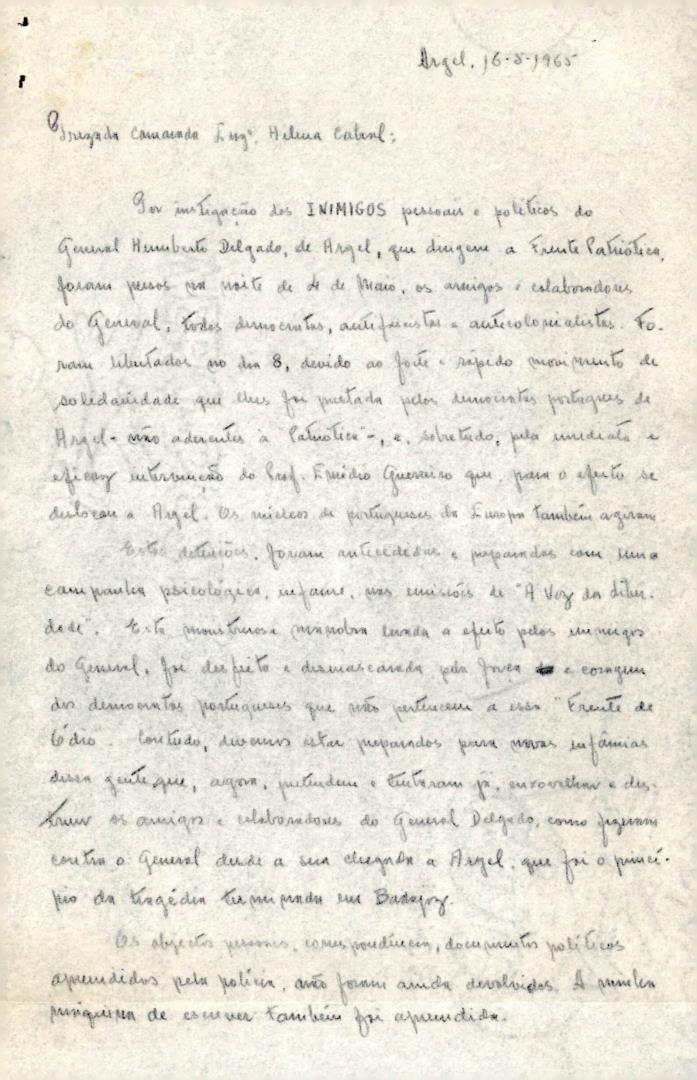 Argel, 16-5-1965
Prezada Camarada Engª. Helena Cabral:
Por instigação dos INIMIGOS pessoais e políticos do
General Humberto Delgado, de Argel, que dirigem a Frente Patriótica,
foram presos na noite de 4 de Maio, os amigos e colaboradores
do General, todos democratas, antifascistas e anticolonialistas. Fo-
ram libertados no dia 8, devido ao forte e rápido movimento de
solidariedade que lhes foi prestada pelos democratas portugueses de
Argel - não aderentes à "Patriótica" -, e, sobretudo, pela imediata e
eficaz intervenção do Prof. Emídio Guerreiro que, para o efeito se
deslocou a Argel. Os núcleos de portugueses da Europa também agiram
Estas detenções, foram antecedidas e preparadas com uma
campanha psicológica, infame, nas emissões de "A Voz da Liber-
dade". Esta monstruosa manobra levada a efeito pelos inimigos
do General, foi desfeita e desmascarada pela força e coragem
dos democratas portugueses que não pertencem a essa "Frente de
Ódio". Contudo, devemos estar preparados para novas infâmias
dessa gente que, agora, pretendem e tentaram já, enxovalhar e des-
truir os amigos e colaboradores do General Delgado, como fizeram
contra o General desde a sua chegada a Argel, que foi o princí-
pio da tragédia terminada em Badajoz.
Os objectos pessoais, correspondência, documentos políticos
apreendidos pela polícia, não foram ainda devolvidos. A minha
máquina de escrever também foi apreendida.